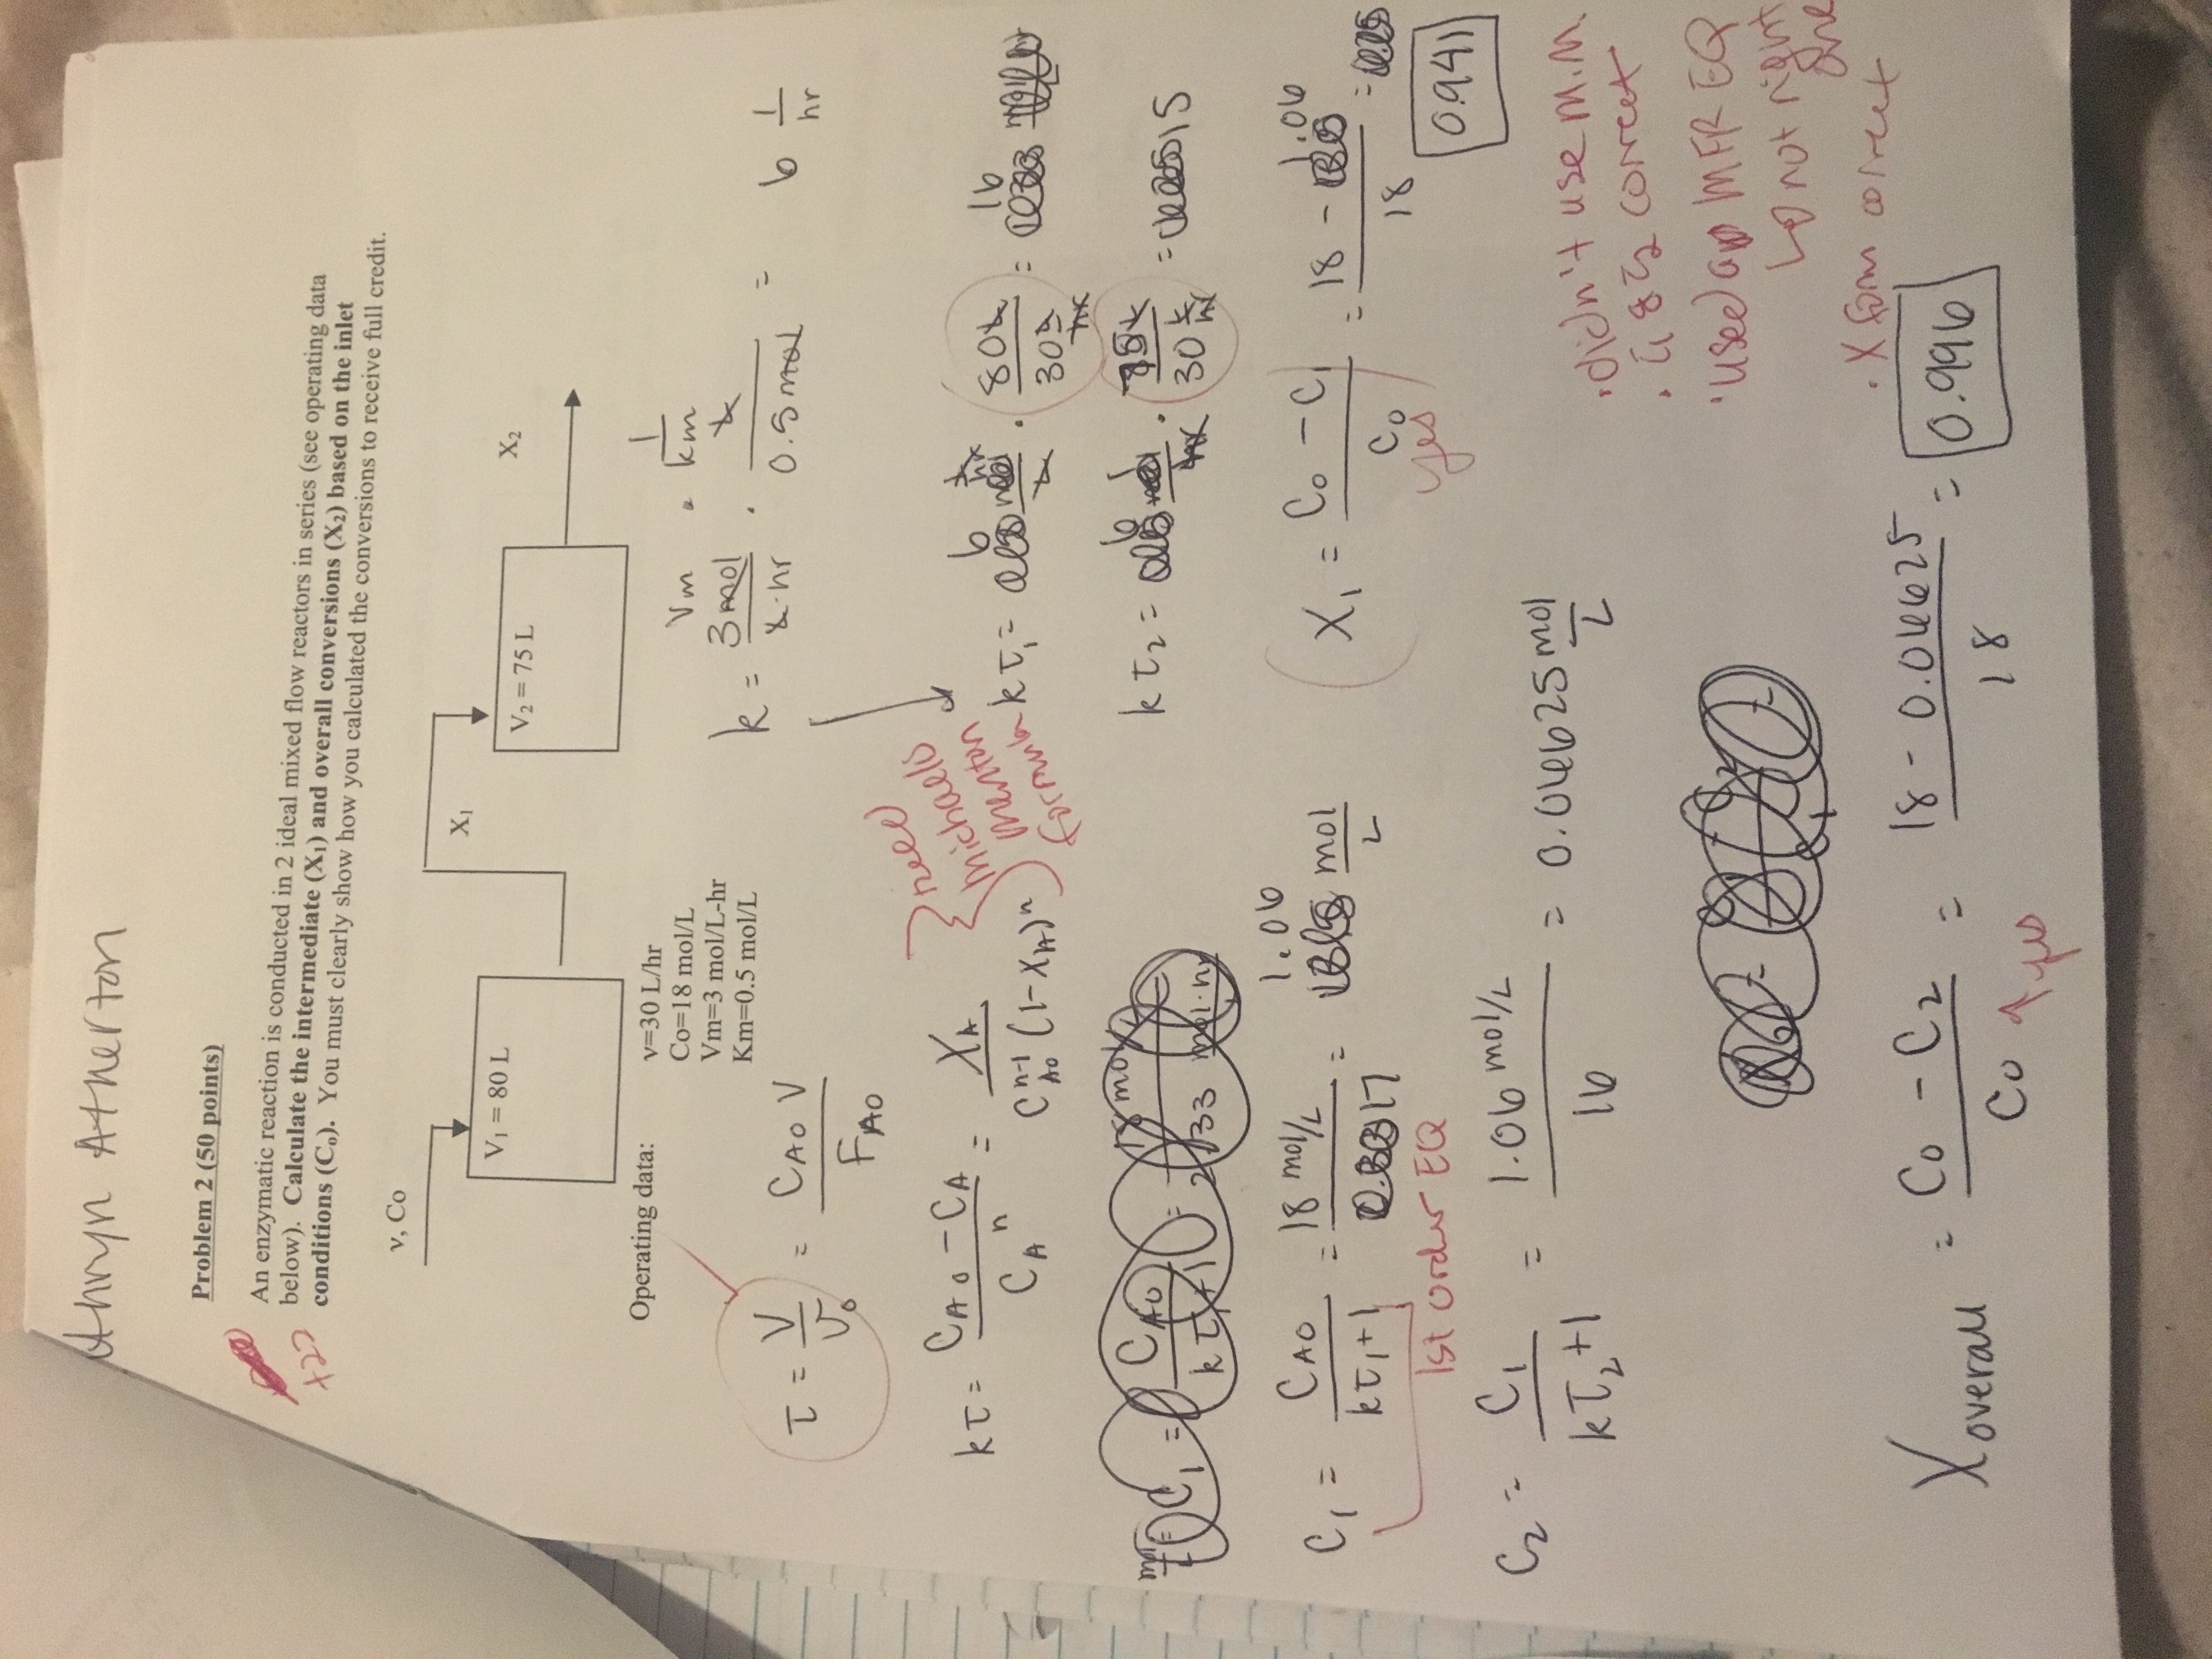 Athryn Atherton
Problem 2 (50 points)
+22
An enzymatic reaction is conducted in 2 ideal mixed flow reactors in series (see operating data
below). Calculate the intermediate (X₁) and overall conversions (X₂) based on the inlet
conditions (Cₒ). You must clearly show how you calculated the conversions to receive full credit.
ν, Co
X₁
V₁ = 80 L
V₂ = 75 L
X₂
Operating data:
ν=30 L/hr
Co=18 mol/L
Vm=3 mol/L-hr
Km=0.5 mol/L
Vm · 1/km
k = 3 mol/L·hr · L/0.5 mol = 6 1/hr
τ = V/v₀ = C_A0 V / F_A0
kτ = (C_A0 - C_A)/C_A^n = X_A / (C_A0^(n-1) (1-X_A)^n)
need
michaels
menton
formula
kτ₁ = 6 1/hr · 80 L / 30 L/hr = 16
kτ₂ = 6 · 75 L / 30 L/hr = 15
C₁ = C_A0 / (kτ₁+1) = 18 mol/L / 17 = 1.06 mol/L
1st order EQ
X₁ = (C₀ - C₁)/C₀ = (18 - 1.06)/18 =
0.941
yes
C₂ = C₁ / (kτ₂+1) = 1.06 mol/L / 16 = 0.06625 mol/L
· didn't use M.M.
· τ₁ & τ₂ correct
· used a MFR EQ
↳ not right
one
· X form correct
X overall = (C₀ - C₂)/C₀ = (18 - 0.06625)/18 = 0.996
↑ yes